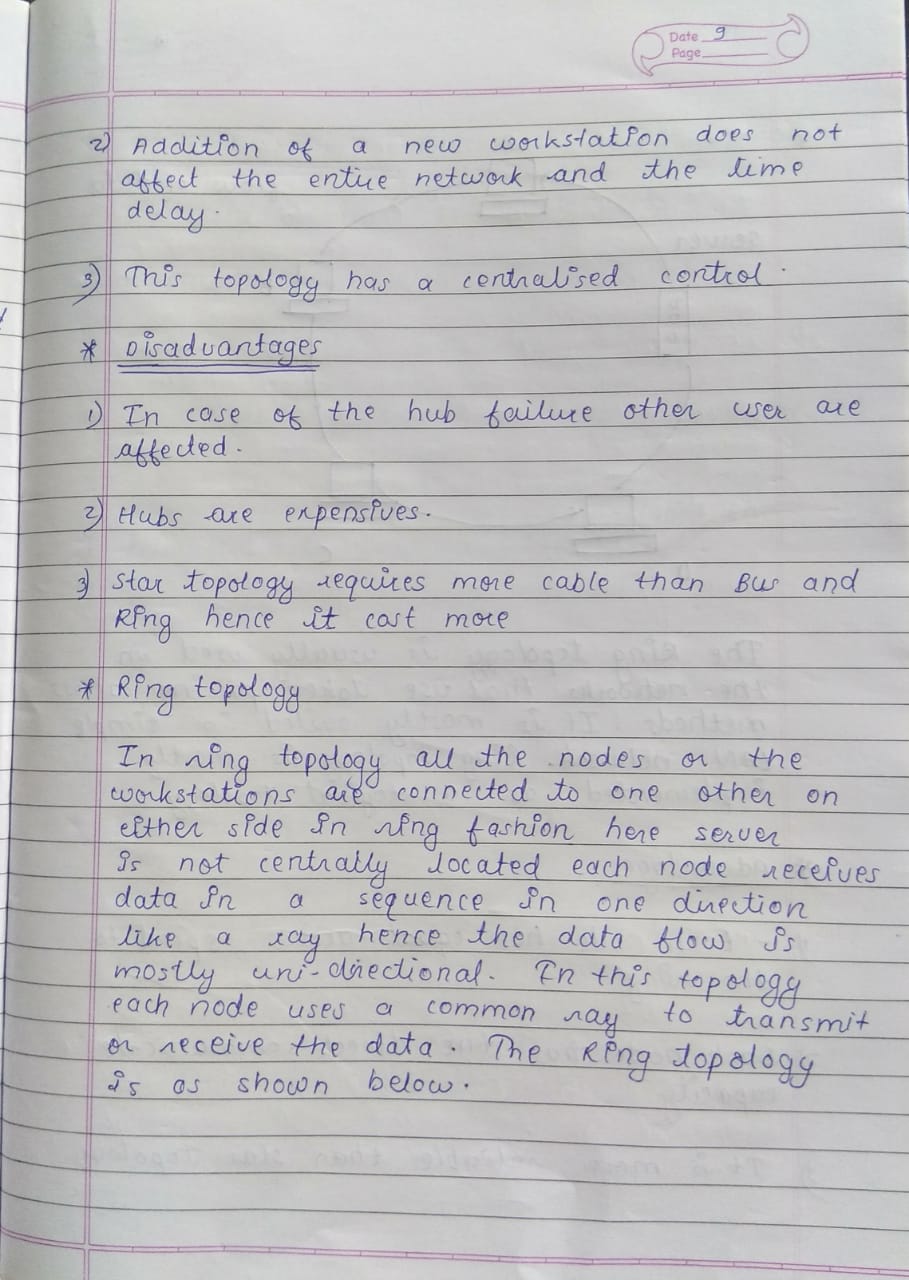 Date 9
Page
2) Addition of a new workstation does not
affect the entire network and the time
delay.
3) This topology has a centralised control.
* Disadvantages
1) In case of the hub failure other user are
affected.
2) Hubs are expensives.
3) Star topology requires more cable than Bus and
Ring hence it cost more
* Ring topology
In ring topology all the nodes or the
workstations are connected to one other on
either side in ring fashion here server
is not centrally located each node receives
data in a sequence in one direction
like a ray hence the data flow is
mostly uni-directional. In this topology
each node uses a common ray to transmit
or receive the data. The Ring topology
is as shown below.